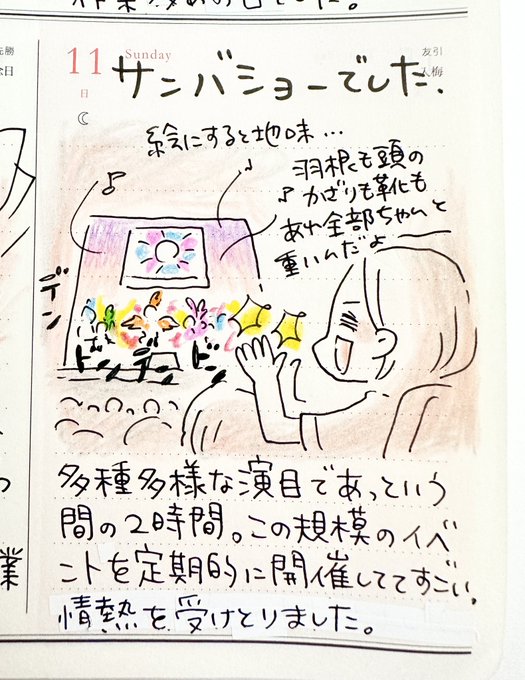 11
日
Sunday
友引
入梅
サンバショーでした.
絵にすると地味…
羽根も頭の
かざりも靴も
あれ全部ちゃんと
重いんだよ
デイン
ドンデンドド
多種多様な演目であっという
間の2時間。この規模のイベ
ントを定期的に開催しててすごい.
情熱を受けとりました。
先勝
業